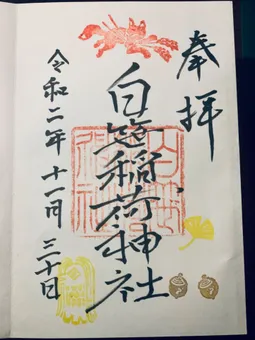 奉拝
白笹稲荷神社
令和二年十一月三十日